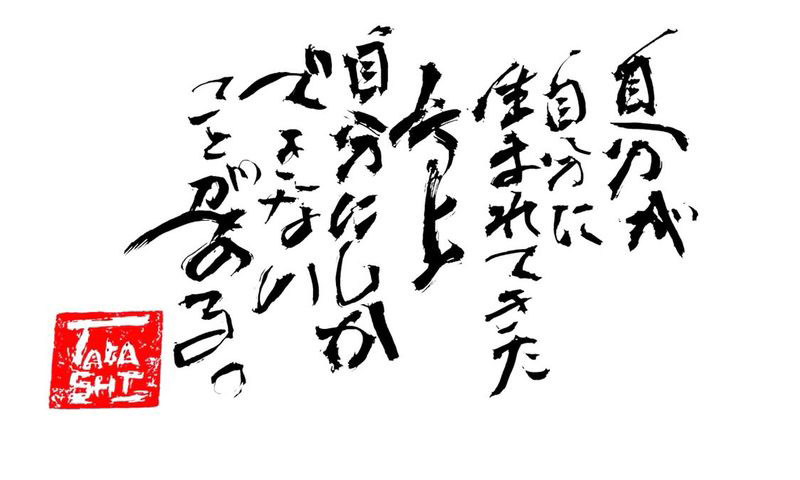 自分が
自分に
生まれてきた
以上
自分にしか
できない
ことがある。
TAKA
SHI